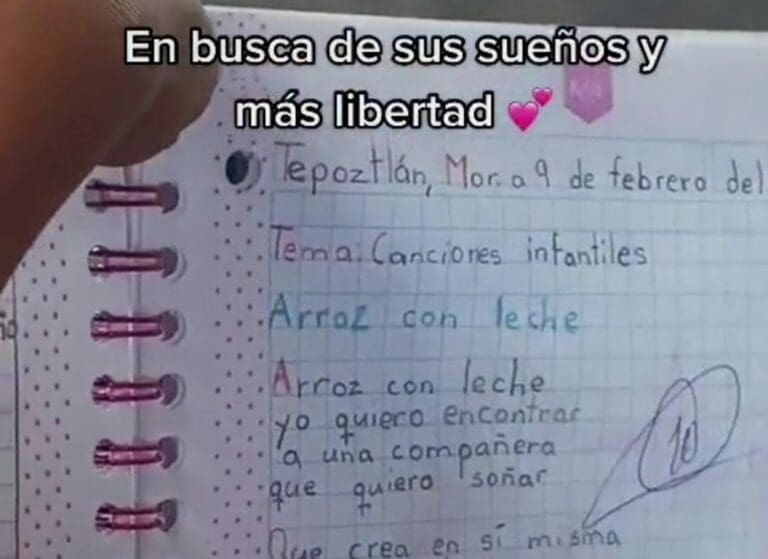 En busca de sus sueños y
más libertad 💕
Tepoztlán, Mor. a 9 de febrero del
Tema: Canciones infantiles
Arroz con leche
Arroz con leche
yo quiero encontrar
a una compañera
que quiero soñar
10
Que crea en sí misma